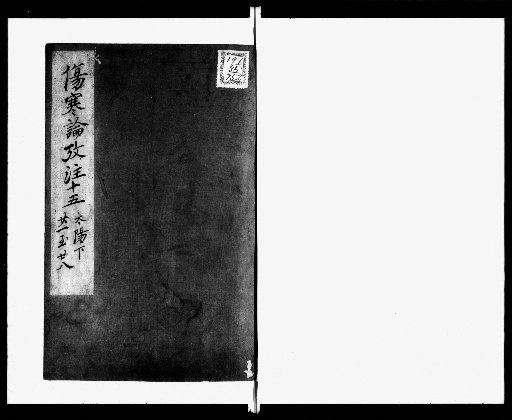 傷寒論攷注十五
太陽下
廿一至廿八